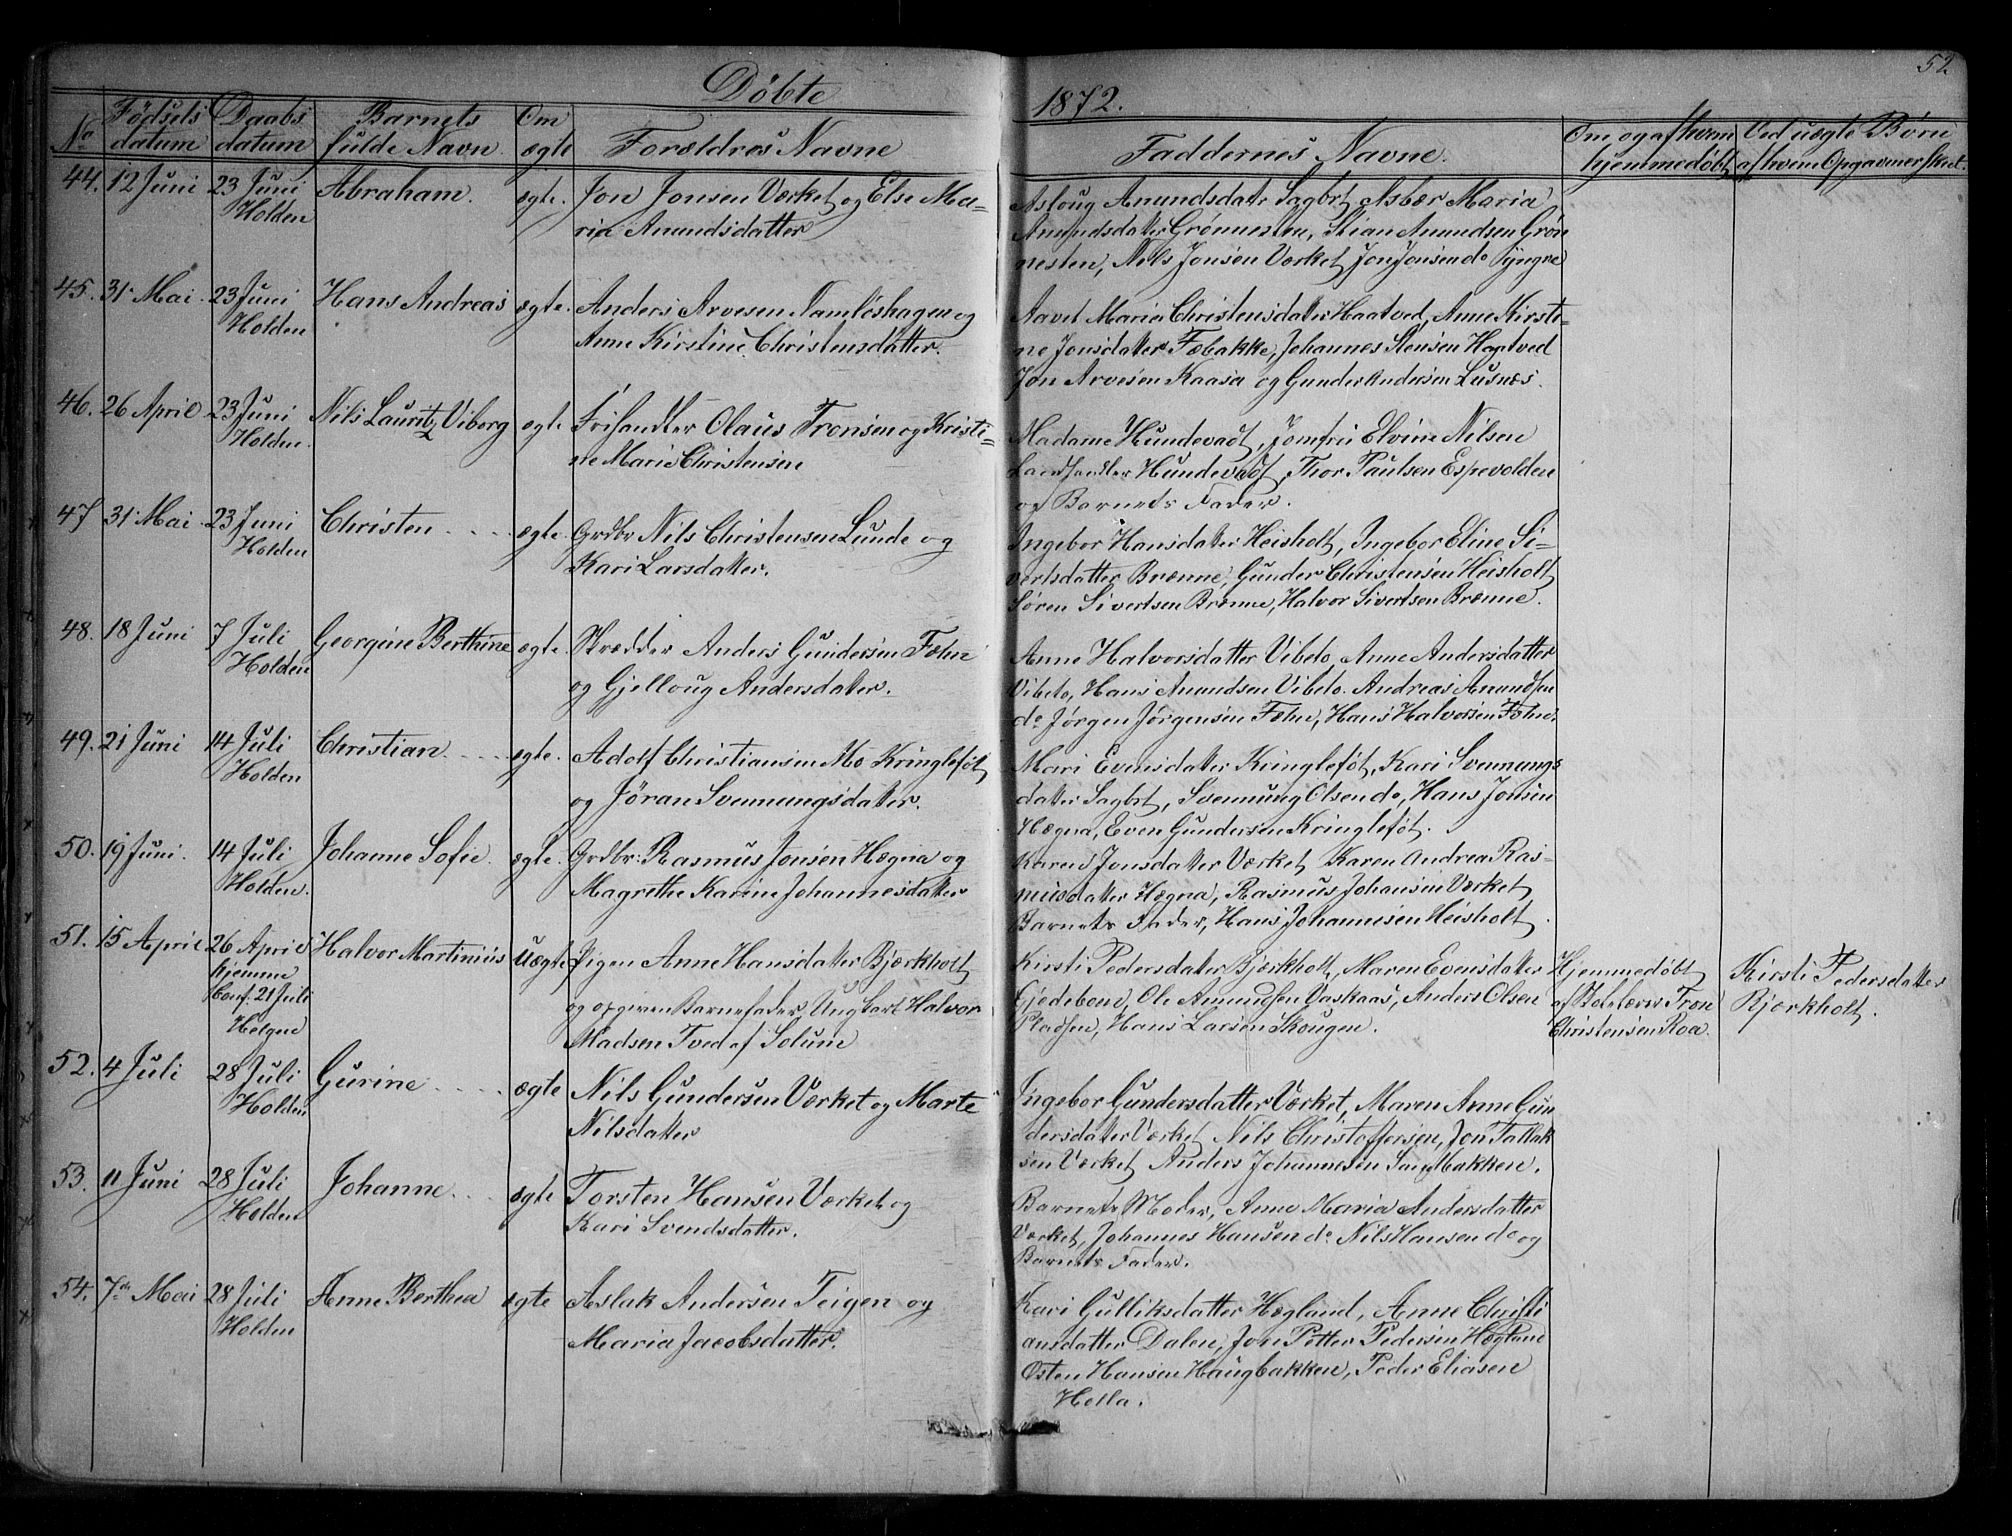 52
Døbte 1872.
No Fødsels datum Daabs datum Barnets fulde Navn Om ægte Forældres Navne Faddernes Navne. Om og af hvem hjemmedøbt Ved uægte Børn af hvem Opgaven er skeet.
44. 12 Juni 23 Juni Holden Abraham. ægte. Jon Jonsen Værket og Else Ma-
ria Anundsdatter
Asloug Anundsdatr Sagbrt, Asbær Maria
Anundsdatter Grønnesten, Stian Anundsen Grøn
nesten, Nils Jonsen Værket Jon Jonsen do
45. 31 Mai. 23 Juni Holden Hans Andreas ægte. Anders Arvesen Namløshagen og
Anne Kirstine Christensdatter.
Aavet Maria Christensdatter Haatved, Anne Kirsti-
ne Jonsdatter Fæbakke, Johannes Stensen Haatved
Jon Arvesen Kaasa og Gunder Andersen Lusnæs.
46. 26 April 23 Juni Holden. Nils Lauritz Viborg ægte Frihandler Olaus Tronsen og Kristi-
ne Marie Christensen
Madame Hundevadt, Jomfru Elvine Nilsen
Landhandler Hundevadt, Thor Paulsen Espevolden
og Barnets Fader.
47 31 Mai 23 Juni Holden Christen ægte. Grdbr Nils Christensen Lunde og
Kari Larsdatter.
Ingebor Hansdatter Heisholt, Ingebor Eline Si-
vertsdatter Brænne, Gunder Christensen Heisholt
Søren Sivertsen Brænne, Halvor Sivertsen Brænne.
48. 18 Juni 7 Juli Holden Georgine Berthine ægte. Skrædder Anders Gundersen Fæhn
og Gjelloug Andersdatter.
Anne Halvorsdatter Vibeto, Anne Andersdatter
Vibeto, Hans Anundsen Vibeto. Andreas Anundsen
do Jørgen Jørgensen Fæhn, Hans Halvorsen Fæhn.
49. 21 Juni 14 Juli Holden Christian ægte. Adolf Christiansen Mo Kringlefot
og Jøran Svennungsdatter.
Mari Evensdatter Kringlefot, Kari Svennungs
datter Sagbrt, Svennung Olsen do, Hans Jonsen
Hægna, Even Gundersen Kringlefot.
50. 19 Juni. 14 Juli Holden. Johanne Sofie. ægte. Grdbr: Rasmus Jonsen Hægna og
Magrethe Karine Johannesdatter
Karen Jonsdatter Værket Karen Andrea Ras-
musdatter Hægna, Rasmus Johansen Værket
Barnets Fader, Hans Johannesen Heisholt.
51. 15 April 26 April hjemme Conf. 21 Juli Helgen Halvor Martinius Uægte Pigen Anne Hansdatter Bjærkholt
og opgiven Barnefader, Ungkarl Halvor
Madsen Tved af Solum
Kirsti Pedersdatter Bjærkholt, Maren Evensdatter
Gjedeboen, Ole Amundsen Vaskaas, Anders Olsen
Pladsen, Hans Larsen Skougen.
Hjemmedøbt
af Skolelærer Tron
Christensen Roa.
Kirsti Pedersdatter
Bjærkholt.
52. 4 Juli 28 Juli Holden Gurine ægte Nils Gundersen Værket og Marte
Nilsdatter
Ingebor Gundersdatter Værket, Maren Anne Gun
dersdatter Værket Nils Christoffersen, Jon Tallak
sen Værket Anders Johannesen Sandbakken.
53. 11 Juni 28 Juli Holden Johanne. ægte Torsten Hansen Værket og
Kari Svendsdatter.
Barnets Moder, Anne Maria Andersdatter
Værket, Johannes Hansen do Nils Hansen do og
Barnets Fader.
54. 7de Mai 28 Juli Holden Anne Berthea ægte Aslak Andersen Teigen og
Maria Jacobsdatter.
Kari Gulliksdatter Hægland, Anne Christi
ansdatter Dalen, Jon Petter Pedersen Hægland
Osten Hansen Haugbakken, Peder Eliasen
Holla.